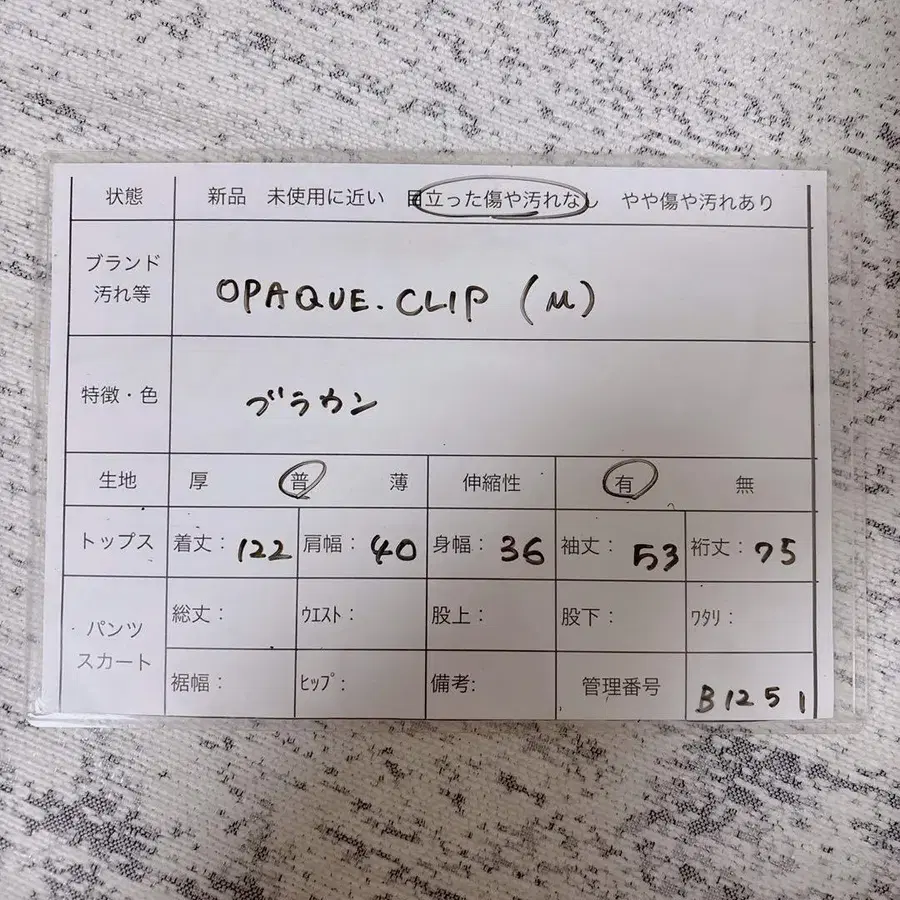 状態 新品 未使用に近い 目立った傷や汚れなし やや傷や汚れあり
ブランド
汚れ等
OPAQUE.CLIP (M)
特徴・色 ブラウン
生地 厚 普 薄 伸縮性 有 無
トップス 着丈：122 肩幅：40 身幅：36 袖丈：53 裄丈：75
パンツ
スカート
総丈： ｳｴｽﾄ： 股上： 股下： ﾜﾀﾘ：
裾幅： ﾋｯﾌﾟ： 備考: 管理番号 B1251